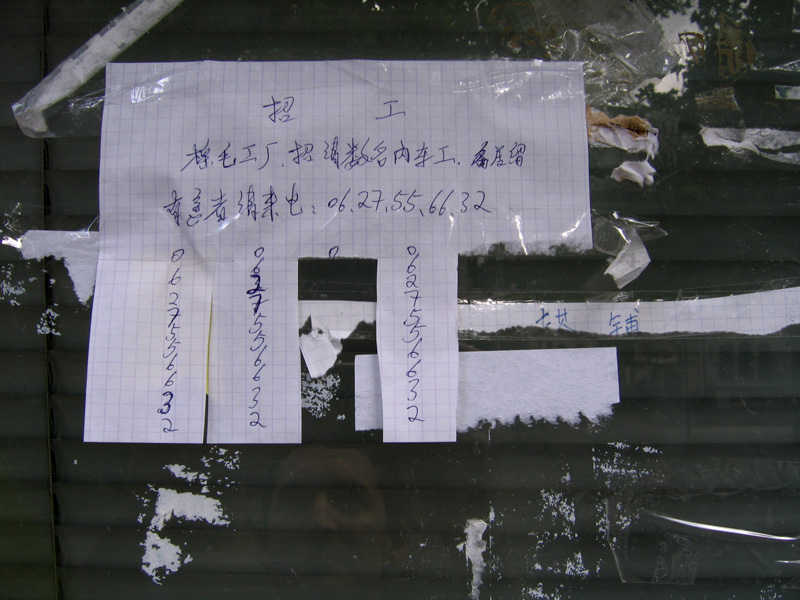 招 工
毛工厂,招请数名内车工,
有意者请来电:06,27,55,66,32
0627556632
0627556632
0
0627556632
铺